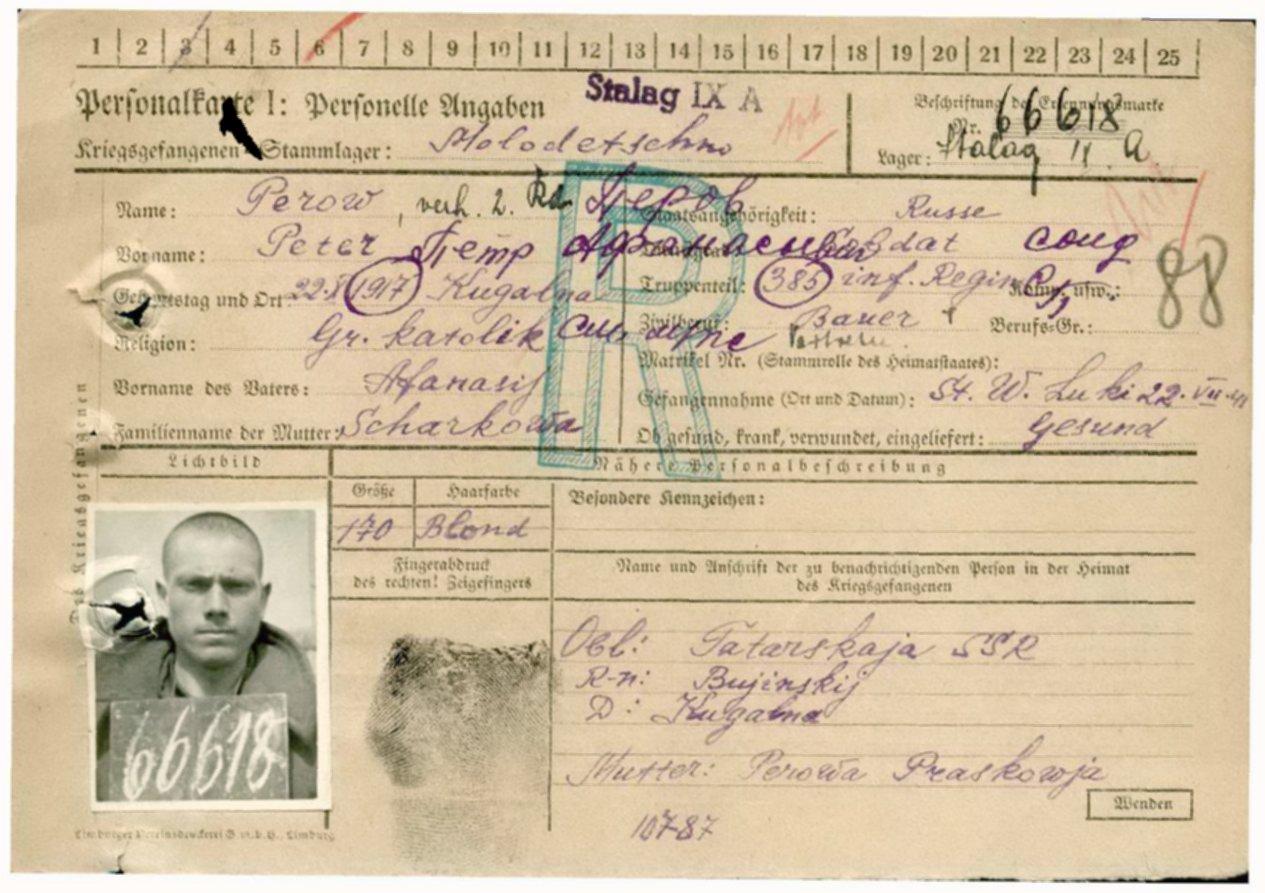 1 2 3 4 5 6 7 8 9 10 11 12 13 14 15 16 17 18 19 20 21 22 23 24 25
Personalkarte I: Personelle Angaben
Stalag IX A
Beschriftung der Erkennungsmarke
Nr. 66618
Kriegsgefangenen-Stammlager: Molodetschno
Lager: Stalag IX A
Name: Perow, verh. 2. Kd. Перов
Staatsangehörigkeit: Russe
Vorname: Peter Петр Афанасьевич
Soldat солд
88
Geburtstag und Ort: 22.8.1917 Kugalna
Truppenteil: 385 inf. Regim Komp. usw.:
Religion: Gr. katolik
Zivilberuf: Bauer Berufs-Gr.:
Matrikel Nr. (Stammrolle des Heimatstaates):
Vorname des Vaters: Afanasij
Gefangennahme (Ort und Datum): St. W. Luki 22. VII. 41
Familienname der Mutter: Scharkowa
Ob gesund, krank, verwundet, eingeliefert: Gesund
R
Des Kriegsgefangenen
Lichtbild
Nähere Personalbeschreibung
Größe
Haarfarbe
Besondere Kennzeichen:
170
Blond
Fingerabdruck
des rechten! Zeigefingers
Name und Anschrift der zu benachrichtigenden Person in der Heimat
des Kriegsgefangenen
Obl: Tatarskaja SSR
R-n: Bujinskij
D: Kugalna
Mutter: Perowa Praskowja
66618
107-87
Wenden
Limburger Vereinsdruckerei G.m.b.H., Limburg